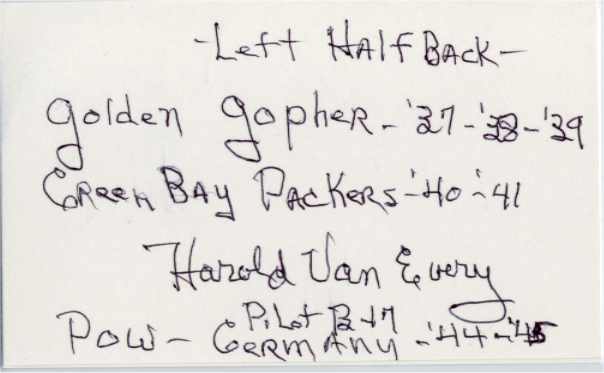 -Left HAlf BAck-
Golden Gopher - '37-'38-'39
Green BAy PAckers-'40-'41
Harold Van Every
Pilot B-17
POW - GermAny -'44-'45